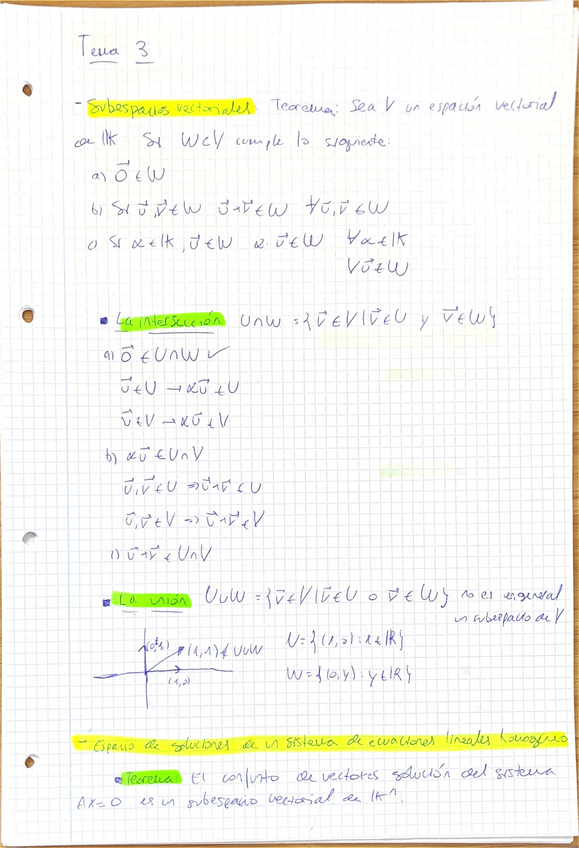 Tema 3
- Subespacios vectoriales. Teorema: Sea V un espación vectorial
con 𝕂. Si W⊂V cumple lo siguiente:
a) 0⃗ ∈ W
b) Si u⃗, v⃗ ∈ W u⃗+v⃗ ∈ W ∀u⃗, v⃗ ∈ W
c) Si α ∈ 𝕂, u⃗ ∈ W α·u⃗ ∈ W ∀α ∈ 𝕂
∀u⃗ ∈ W
▪ La intersección U∩W = {v⃗ ∈ V | v⃗ ∈ U y v⃗ ∈ W}
a) 0⃗ ∈ U∩W ✓
u⃗ ∈ U → αu⃗ ∈ U
u⃗ ∈ V → αu⃗ ∈ V
b) αu⃗ ∈ U∩V
u⃗, v⃗ ∈ U ⇒ u⃗+v⃗ ∈ U
u⃗, v⃗ ∈ V ⇒ u⃗+v⃗ ∈ V
c) u⃗+v⃗ ∈ U∩V
▪ La unión U∪W = {v⃗ ∈ V | v⃗ ∈ U o v⃗ ∈ W} no es en general
un subespacio de V
(0,1) (1,1) ∉ U∪W U = {(x,0) : x ∈ ℝ}
(1,0) W = {(0,y) : y ∈ ℝ}
- Espacio de soluciones de un sistema de ecuaciones lineales homogéneo
▪ Teorema: El conjunto de vectores solución del sistema
AX=0 es un subespacio vectorial de 𝕂ⁿ.